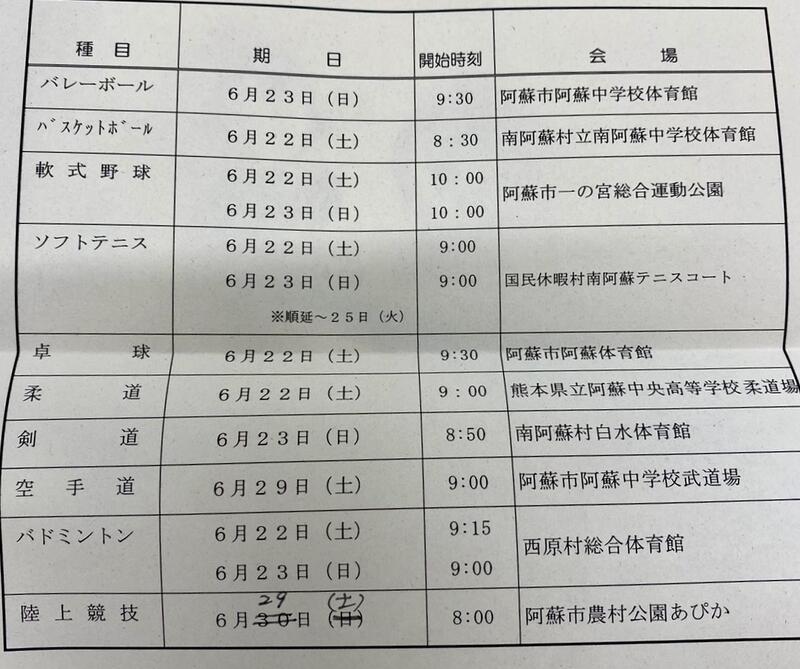 種目 期日 開始時刻 会場
バレーボール 6月23日（日） 9:30 阿蘇市阿蘇中学校体育館
バスケットボール 6月22日（土） 8：30 南阿蘇村立南阿蘇中学校体育館
軟式野球 6月22日（土） 10：00 阿蘇市一の宮総合運動公園
6月23日（日） 10：00
ソフトテニス 6月22日（土） 9:00
6月23日（日） 9:00 国民休暇村南阿蘇テニスコート
※順延～25日（火）
卓球 6月22日（土） 9:30 阿蘇市阿蘇体育館
柔道 6月22日（土） 9：00 熊本県立阿蘇中央高等学校柔道場
剣道 6月23日（日） 8:50 南阿蘇村白水体育館
空手道 6月29日（土） 9:00 阿蘇市阿蘇中学校武道場
バドミントン 6月22日（土） 9:15 西原村総合体育館
6月23日（日） 9:00
29 （土）
陸上競技 6月30日（日） 8:00 阿蘇市農村公園あぴか